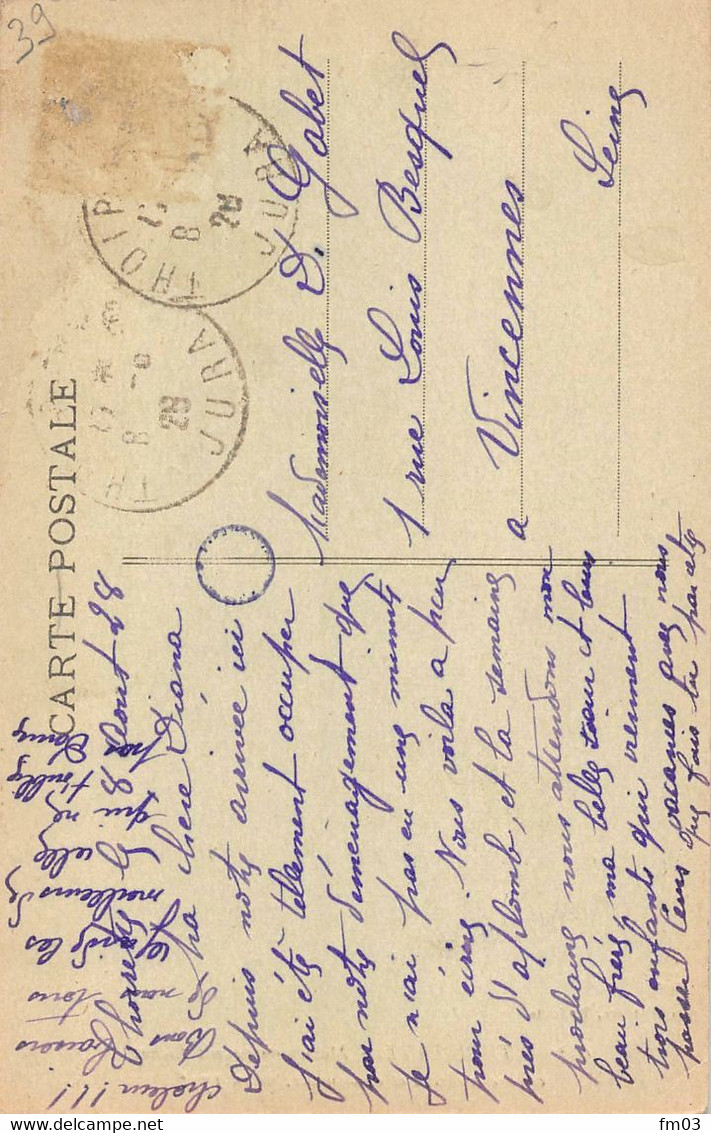 39
CARTE POSTALE
THOIR
8
28
JURA
TH
8
28
JURA
Thoirette 8 Aout 28
Ma chère Diana
Depuis notre arrivée ici
j'ai été tellement occupée
par notre déménagement que
je n'ai pas eu une minute
pour écrire. Nous voilà a peu
près d'aplomb, et la semaine
prochaine nous attendons mon
beau frère, ma belle sœur et leurs
trois enfants qui viennent
passer leurs vacances avec nous
chaleur !!!
Bons
Baisers
de nous tous
les
meilleurs
qui ne
Mademoiselle D. Gobet
1 rue Louis Besquel
a Vincennes
Seine
fm03